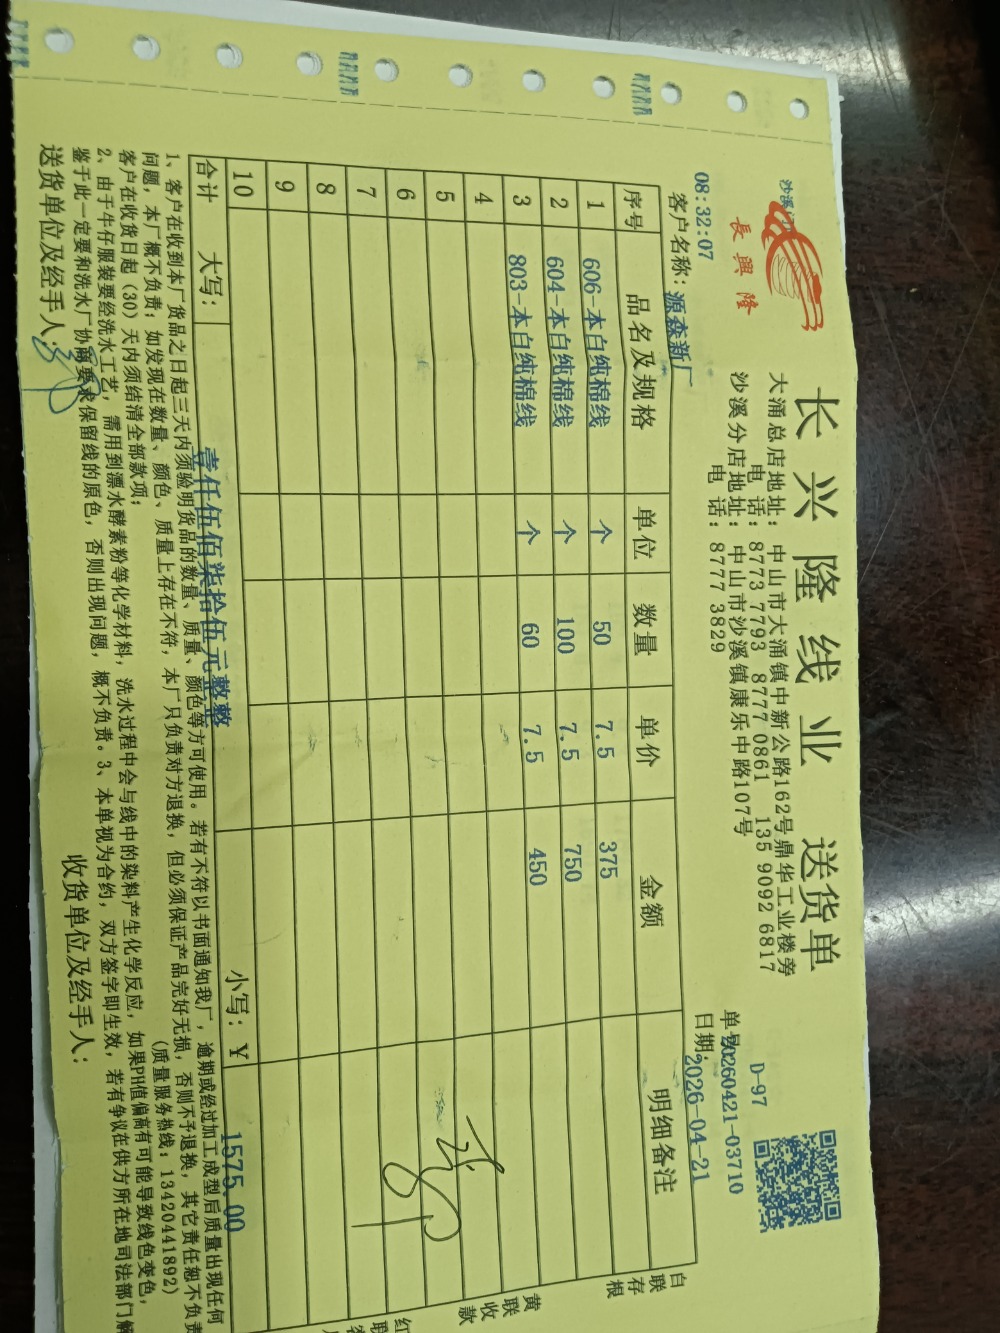 長興隆
长兴隆线业 送货单
大涌总店地址：中山市大涌镇中新公路162号鼎华工业楼旁
电 话：8773 7793 8777 0861 135 9092 6817
沙溪分店地址：中山市沙溪镇康乐中路107号
电 话：8777 3829
D-97
单号20260421-03710
日期：2026-04-21
08:32:07
客户名称：源森新厂
序号 品名及规格 单位 数量 单价 金额 明细备注
1 606-本白纯棉线 个 50 7.5 375
2 604-本白纯棉线 个 100 7.5 750
3 803-本白纯棉线 个 60 7.5 450
4
5
6
7
8
9
10
合计 大写：壹仟伍佰柒拾伍元整整 小写：￥ 1575.00
白联存根
黄联收款
红联
1、客户在收到本厂货品之日起三天内须验明货品的数量、质量、颜色等方可使用。若有不符以书面通知我厂，逾期或经过加工成型后质量出现任何
问题，本厂概不负责；如发现在数量、颜色、质量上存在不符，本厂只负责对方退换，但必须保证产品完好无损，否则不予退换，其它责任恕不负责
客户在收货日起（30）天内须结清全部款项； （质量服务热线：13420441892）
2、由于牛仔服装要经洗水工艺，需用到漂水酵素粉等化学材料，洗水过程中会与线中的染料产生化学反应，如果PH值偏高有可能导致线色变色，
鉴于此一定要和洗水厂协商要求保留线的原色，否则出现问题，概不负责。3、本单视为合约，双方签字即生效，若有争议在供方所在地司法部门解
送货单位及经手人： 收货单位及经手人：